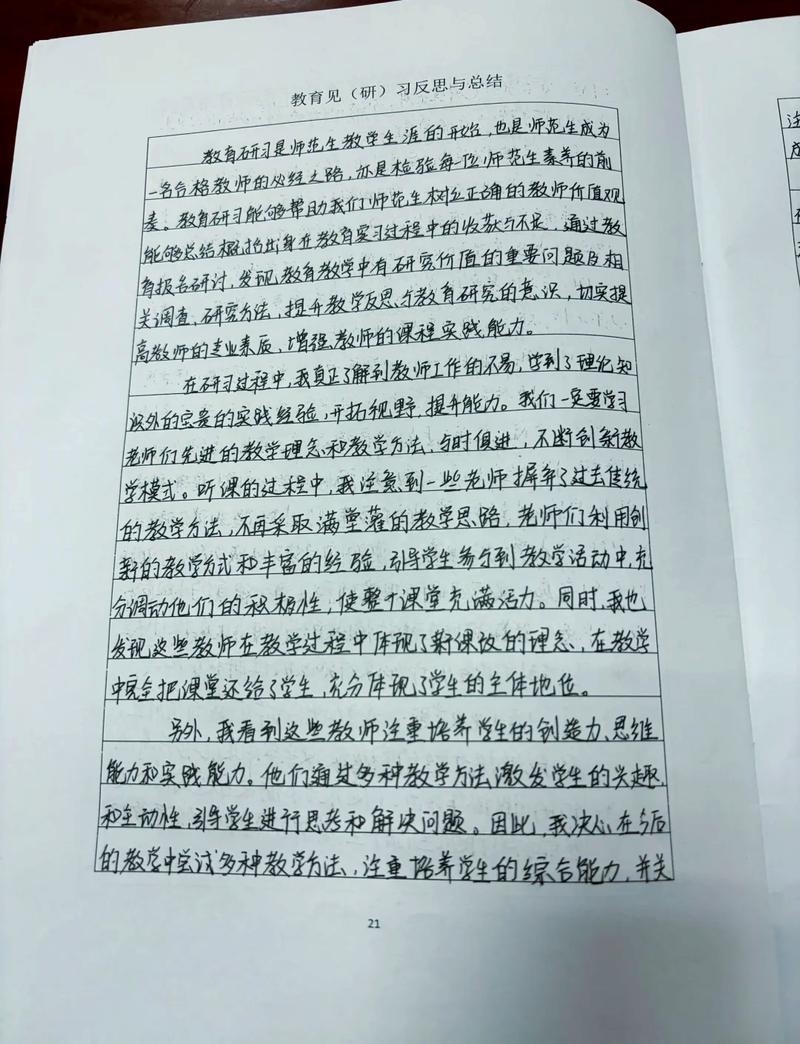 教育见（研）习反思与总结
教育研习是师范生教学生涯的开始，也是师范生成为
一名合格教师的必经之路，亦是检验每一位师范生素养的前
奏。教育研习能够帮助我们师范生树立正确的教师价值观
能够总结概括出身在教育实习过程中的收获与不足，通过教
育报告研讨，发现教育教学中有研究价值的重要问题及相
关调查、研究方法，提升教学反思与教育研究的意识，切实提
高教师的专业素质、增强教师的课程实践能力。
在研习过程中，我真正了解到教师工作的不易，学到了理论知
识外的宝贵的实践经验，开拓视野，提升能力。我们一定要学习
老师们先进的教学理念和教学方法，与时俱进，不断创新教
学模式。听课的过程中，我注意到一些老师摒弃了过去传统
的教学方法，不再采取满堂灌的教学思路，老师们利用创
新的教学方式和丰富的经验，引导学生参与到教学活动中，充
分调动他们的积极性，使整个课堂充满活力。同时，我也
发现这些教师在教学过程中体现了新课改的理念，在教学
中完全把课堂还给了学生，充分体现了学生的主体地位。
另外，我看到这些教师注重培养学生的创造力、思维
能力和实践能力。他们通过多种教学方法，激发学生的兴趣
和主动性，引导学生进行思考和解决问题。因此，我决心在今后
的教学中尝试多种教学方法，注重培养学生的综合能力，并关
21
注
成